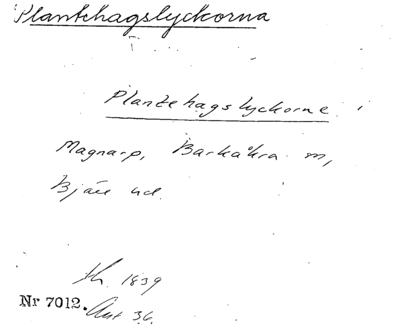 Plantehagslyckorna
Plantehagslyckorne
Magnarp, Barkåkra sn,
Bjäre hd.
sk. 1839
Nr 7012. Akt 36.